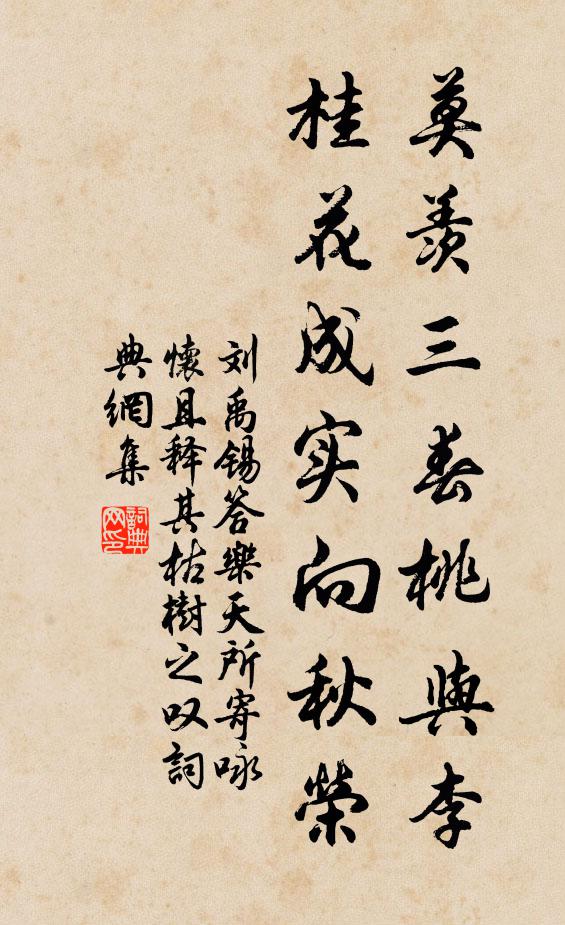 莫羨三春桃與李
桂花成实向秋榮
刘禹锡答樂天所寄咏
懷且释其枯樹之叹詞
典網集
詞典
网印